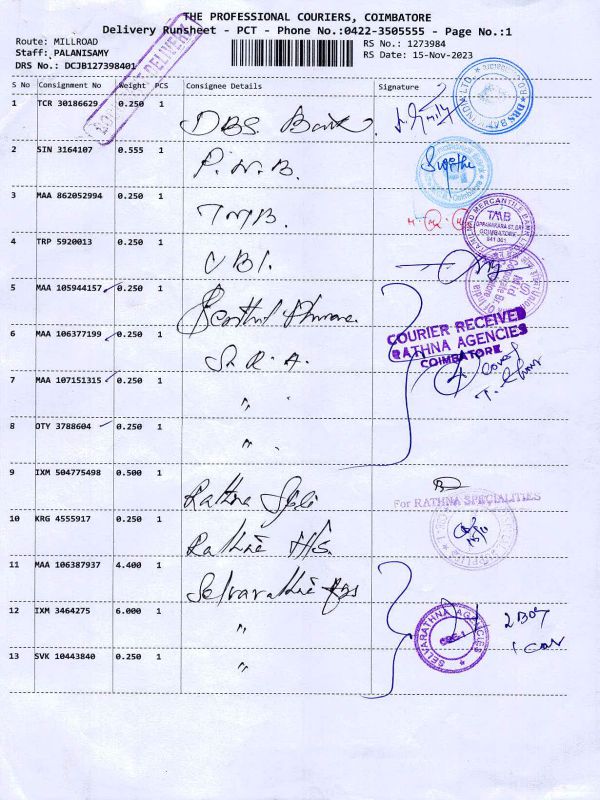 THE PROFESSIONAL COURIERS, COIMBATORE
Delivery Runsheet - PCT - Phone No.:0422-3505555 - Page No.:1
Route: MILLROAD
Staff: PALANISAMY
DRS No.: DCJB127398401
RS No.: 1273984
RS Date: 15-Nov-2023
DELIVERY
S No Consignment No Weight PCS Consignee Details Signature
1 TCR 30186629 0.250 1 DBS Bank
2 SIN 3164107 0.555 1 P.N.B.
3 MAA 862052994 0.250 1 TMB.
TMB
COIMBATORE
641 001
4 TRP 5920013 0.250 1 UBI.
5 MAA 105944157 0.250 1
COURIER RECEIVED
RATHNA AGENCIES
COIMBATORE
6 MAA 106377199 0.250 1 Sr. R. A.
4 Cover
7 MAA 107151315 0.250 1 "
8 OTY 3788604 0.250 1 "
9 IXM 504775498 0.500 1 Rathna
For RATHNA SPECIALITIES
10 KRG 4555917 0.250 1
11 MAA 106387937 4.400 1
12 IXM 3464275 6.000 1 "
SELVARATHNA AGENCIES
CBE-1
2 Box
1 Cov
13 SVK 10443840 0.250 1 "